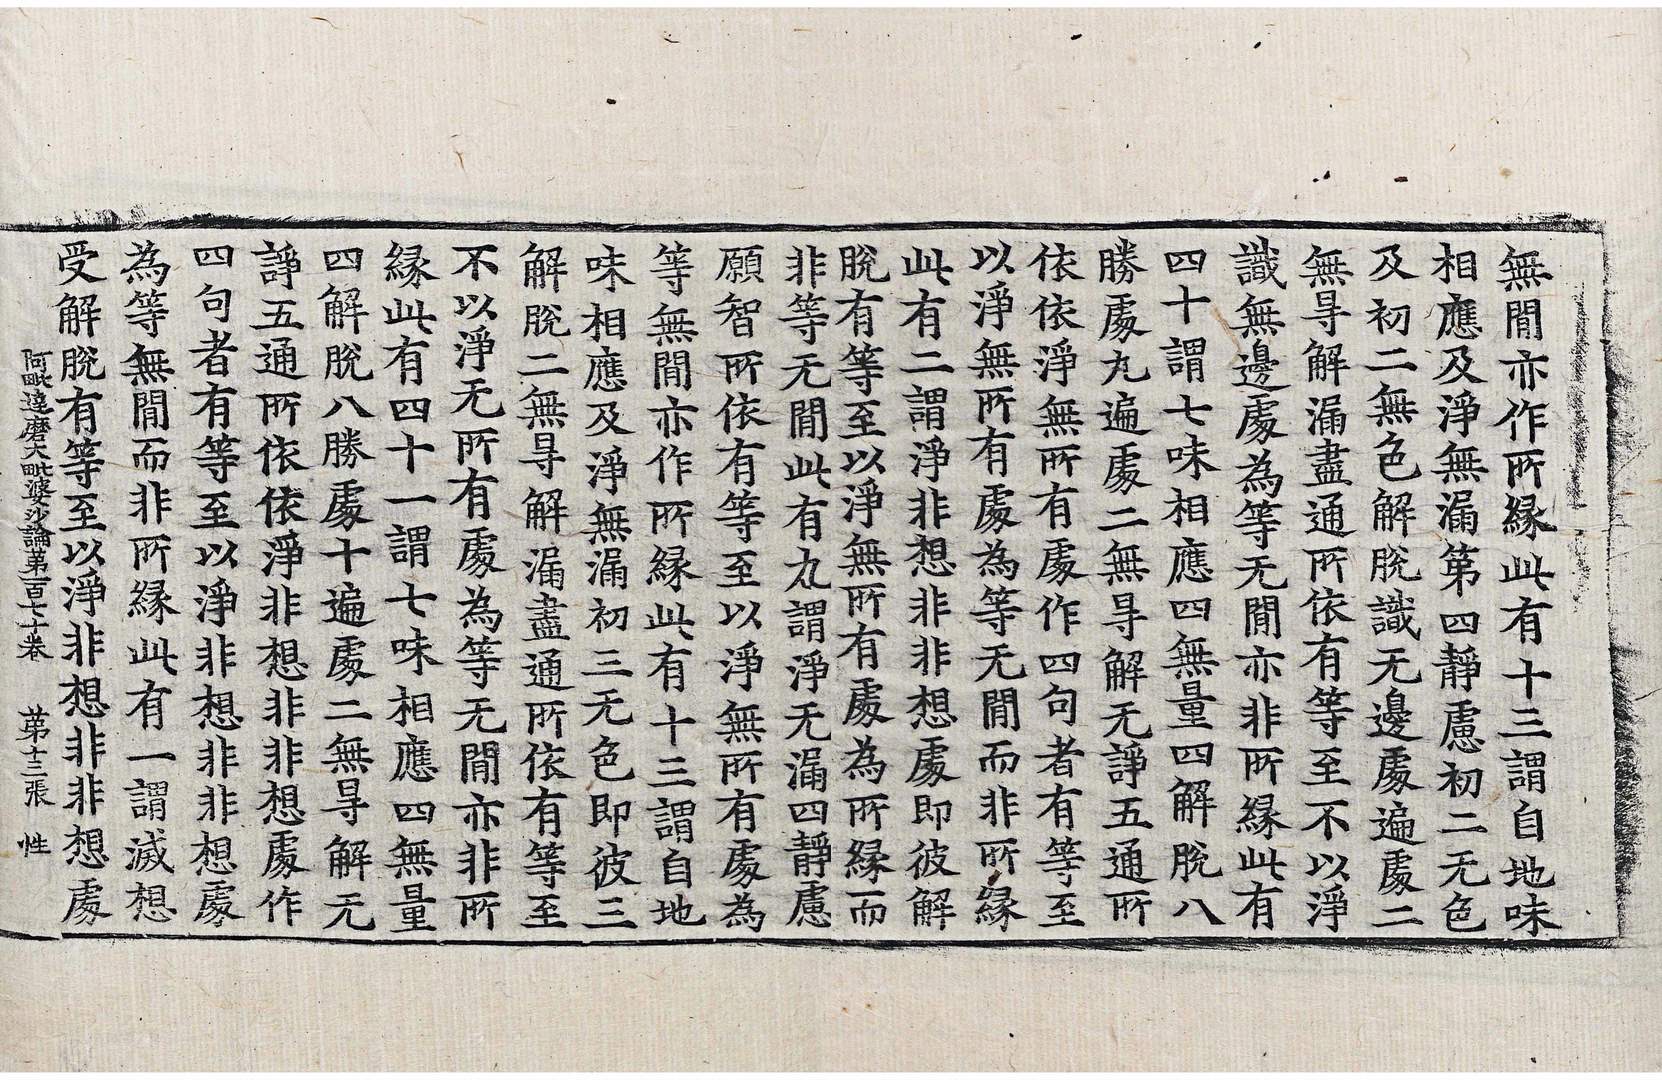 無閒亦作所縁此有十三謂自地味
相應及淨無漏第四靜慮初二无色
及初二無色解脫識无邊處遍處二
無㝵解漏盡通所依有等至不以淨
識無邊處為等无閒亦非所縁此有
四十謂七味相應四無量四解脫八
勝處九遍處二無㝵解无諍五通所
依依淨無所有處作四句者有等至
以淨無所有處為等无閒而非所縁
此有二謂淨非想非非想處即彼解
脫有等至以淨無所有處為所縁而
非等无閒此有九謂淨无漏四靜慮
願智所依有等至以淨無所有處為
等無閒亦作所縁此有十三謂自地
味相應及淨無漏初三无色即彼三
解脫二無㝵解漏盡通所依有等至
不以淨无所有處為等无閒亦非所
縁此有四十一謂七味相應四無量
四解脫八勝處十遍處二無㝵解无
諍五通所依依淨非想非非想處作
四句者有等至以淨非想非非想處
為等無閒而非所縁此有一謂滅想
受解脫有等至以淨非想非非想處
阿毗達磨大毗婆沙論第百七十卷 第十三張 性